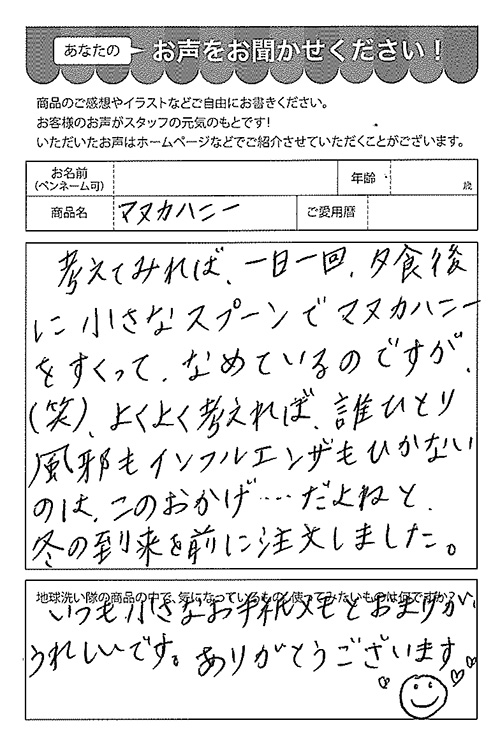 あなたの お声をお聞かせください！
商品のご感想やイラストなどご自由にお書きください。
お客様のお声がスタッフの元気のもとです！
いただいたお声はホームページなどでご紹介させていただくことがございます。
お名前
(ペンネーム可)
年齢
歳
商品名 マヌカハニー ご愛用暦
考えてみれば、一日一回、夕食後
に小さなスプーンでマヌカハニー
をすくって、なめているのですが、
(笑)、よくよく考えれば、誰ひとり
風邪もインフルエンザもひかない
のは、このおかげ…だよねと、
冬の到来を前に注文しました。
地球洗い隊の商品の中で、気になっているもの、使ってみたいものは何ですか？
いつも小さなお手紙メモとおまけが
うれしいです。ありがとうございます